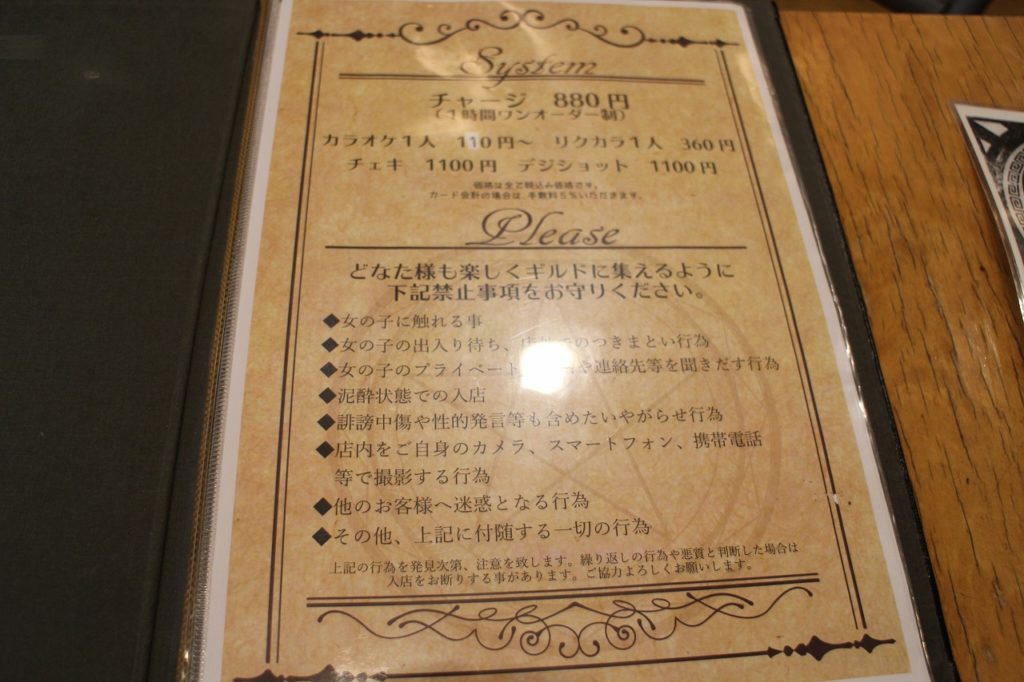 System
チャージ 880円
(1時間ワンオーダー制)
カラオケ1人 110円～ リクカラ1人 360円
チェキ 1100円 デジショット 1100円
価格は全て税込み価格です。
カード会計の場合は、手数料5%いただきます。
Please
どなた様も楽しくギルドに集えるように
下記禁止事項をお守りください。
◆女の子に触れる事
◆女の子の出入り待ち、のつきまとい行為
◆女の子のプライベートや連絡先等を聞きだす行為
◆泥酔状態での入店
◆誹謗中傷や性的発言等も含めたいやがらせ行為
◆店内をご自身のカメラ、スマートフォン、携帯電話
等で撮影する行為
◆他のお客様へ迷惑となる行為
◆その他、上記に付随する一切の行為
上記の行為を発見次第、注意を致します。繰り返しの行為や悪質と判断した場合は
入店をお断りする事があります。ご協力よろしくお願いします。